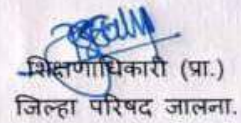 शिक्षणाधिकारी (प्रा.)
जिल्हा परिषद जालना.